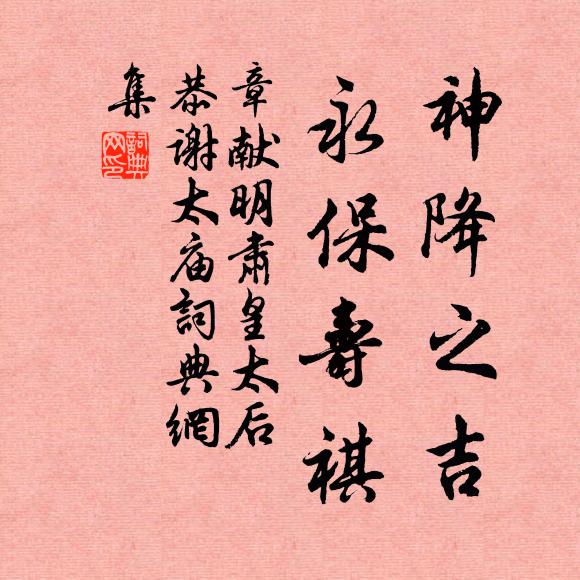 神降之吉
永保壽祺
章献明肃皇太后
恭谢太庙詞典網
集
詞典
网印